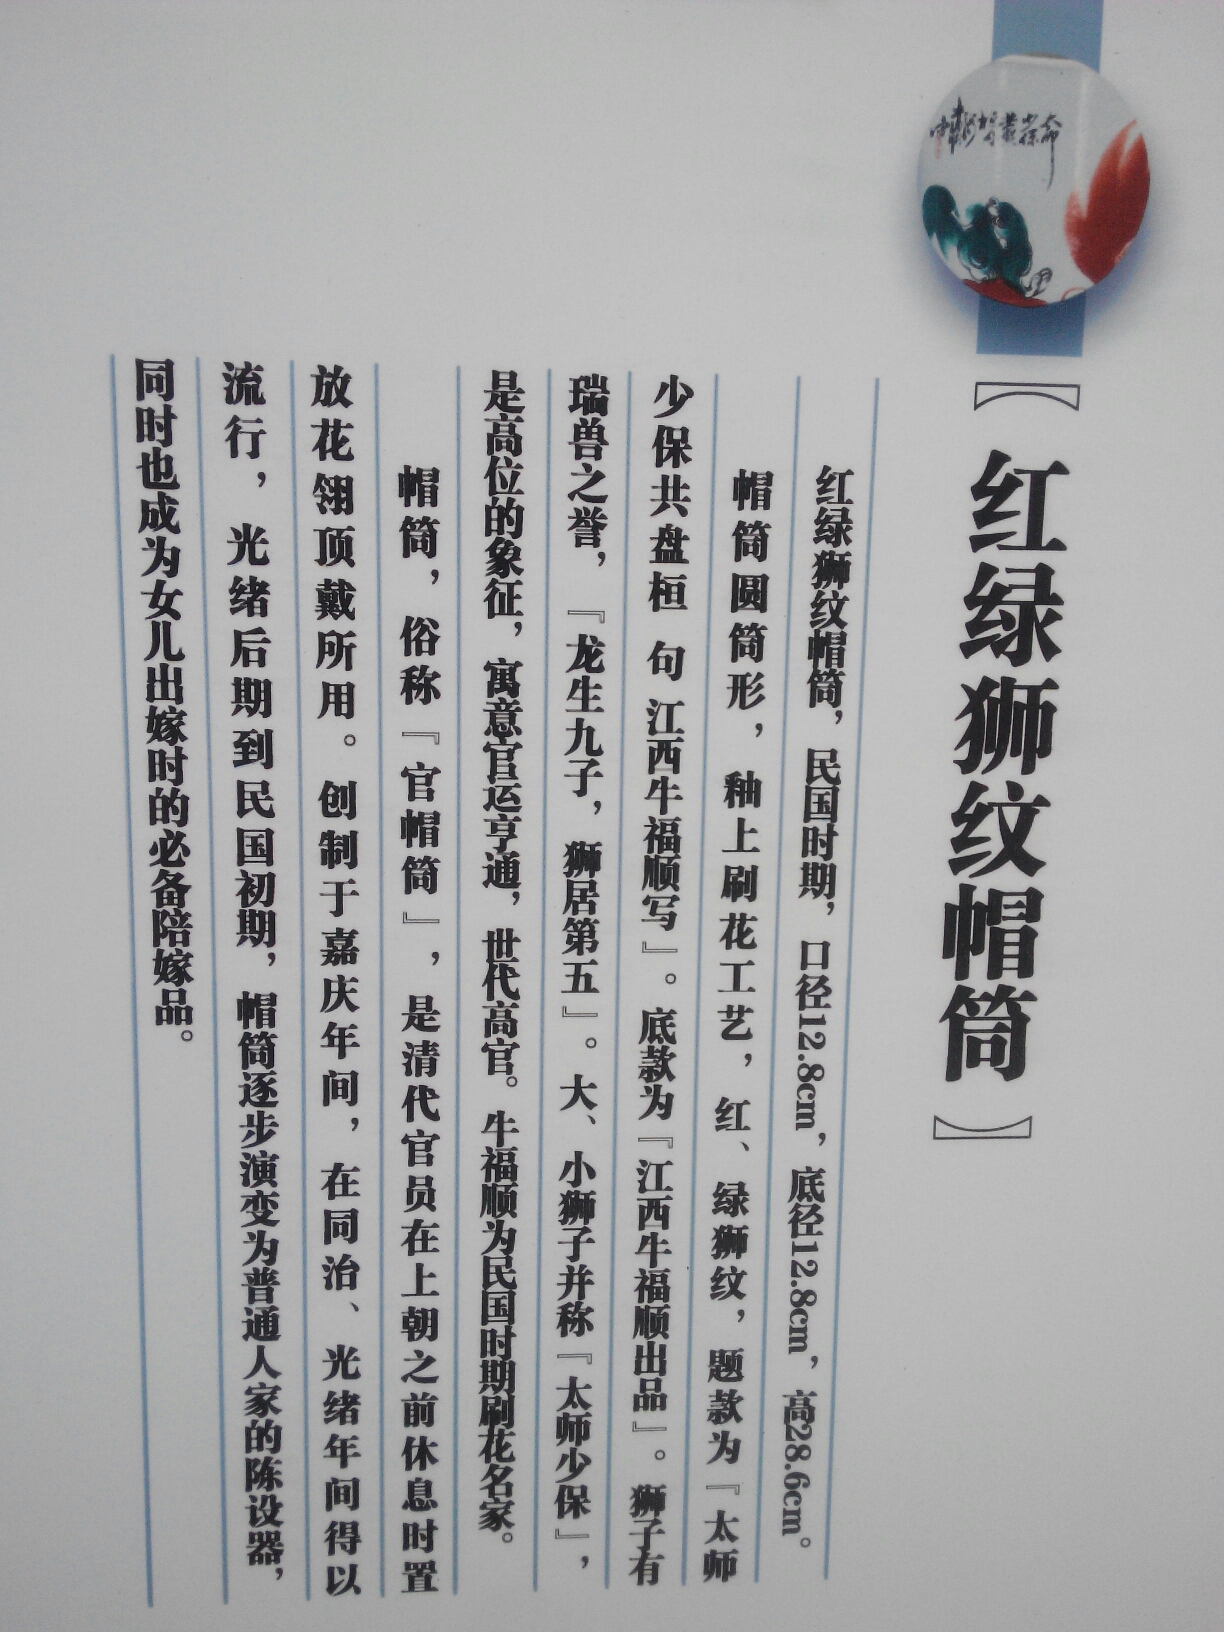 【红绿狮纹帽筒】
红绿狮纹帽筒，民国时期，口径12.8cm，底径12.8cm，高28.6cm。
帽筒圆筒形，釉上刷花工艺，红、绿狮纹，题款为『太师
少保共盘桓 句 江西牛福顺写』。底款为『江西牛福顺出品』。狮子有
瑞兽之誉，『龙生九子，狮居第五』。大、小狮子并称『太师少保』，
是高位的象征，寓意官运亨通，世代高官。牛福顺为民国时期刷花名家。
帽筒，俗称『官帽筒』，是清代官员在上朝之前休息时置
放花翎顶戴所用。创制于嘉庆年间，在同治、光绪年间得以
流行，光绪后期到民国初期，帽筒逐步演变为普通人家的陈设器，
同时也成为女儿出嫁时的必备陪嫁品。